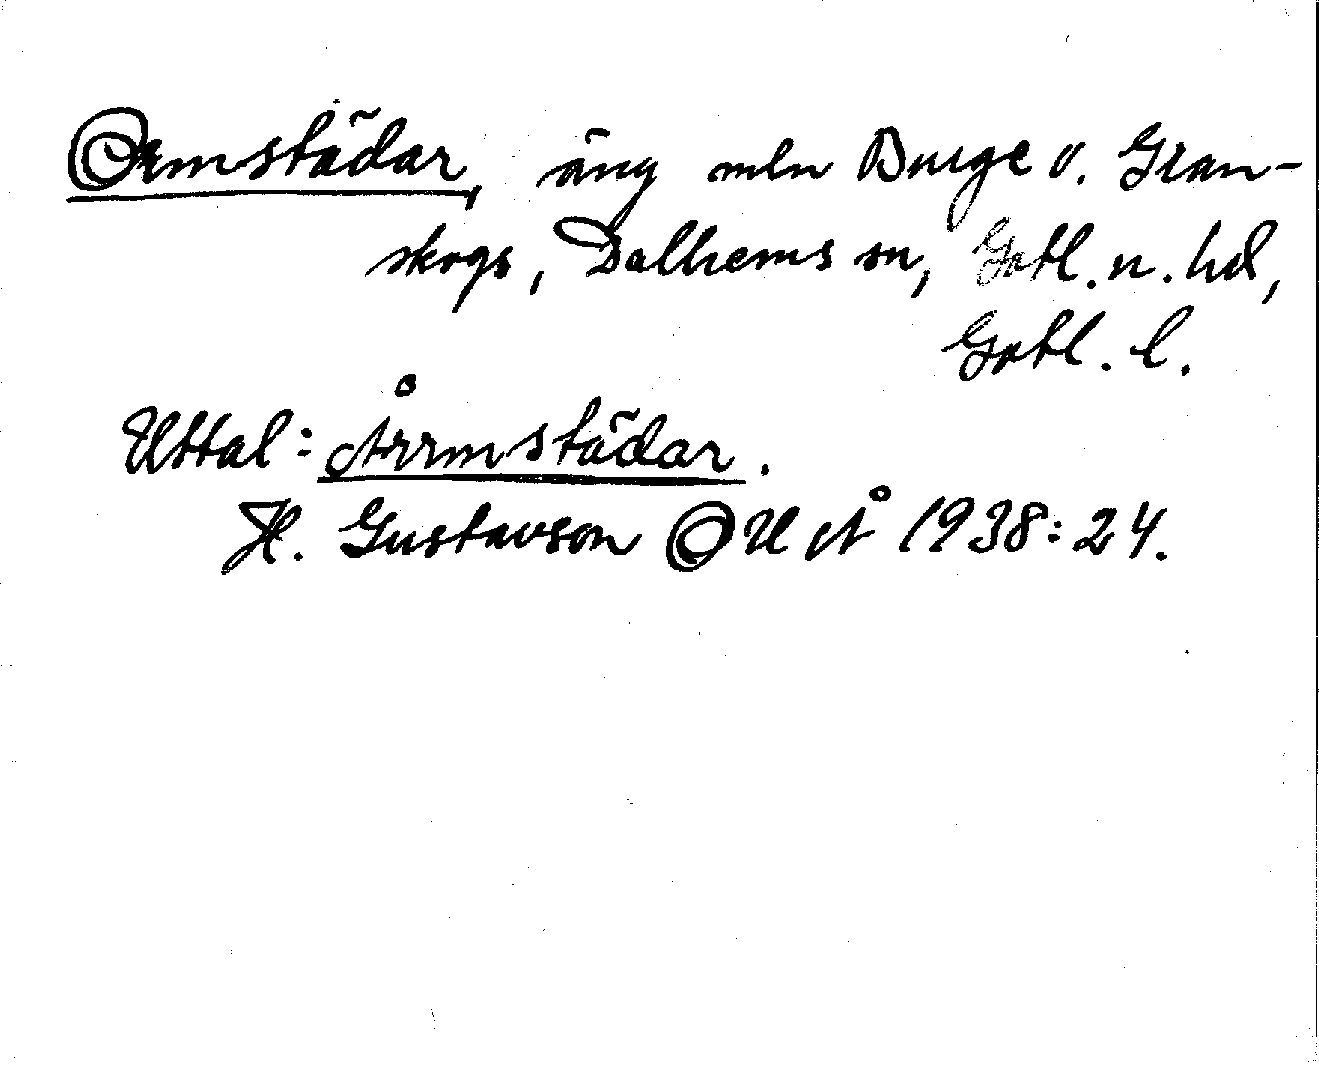 Ormstädar, äng mln Burge o. Gran-
skogs, Dalhems sn, Gotl. n. hd,
Gotl. l.
Uttal: Årrmstädar.
H. Gustavson OUÅ 1938:24.